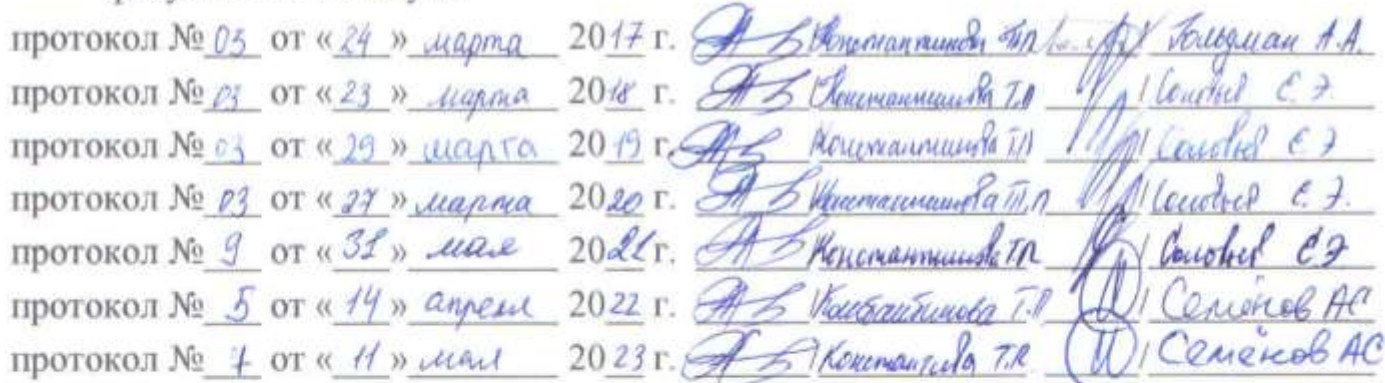 протокол № 03 от « 24 » марта 2017 г. Константинова Т.П. / Гольдман А.А.
протокол № 03 от « 23 » марта 2018 г. Константинова Т.П / Соловьев С. Э.
протокол № 03 от « 29 » марта 2019 г. Константинова Т.П / Соловьев С. Э
протокол № 03 от « 27 » марта 2020 г. Константинова Т.П / Соловьев С. Э.
протокол № 9 от « 31 » мая 2021 г. Константинова Т.П / Соловьев С Э
протокол № 5 от « 14 » апреля 2022 г. Константинова Т.П / Семёнов АС
протокол № 7 от « 11 » мая 2023 г. Константинова Т.П. / Семёнов АС